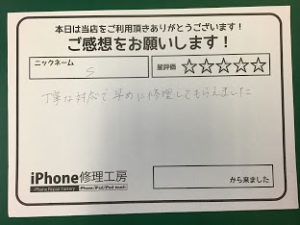 本日は当店をご利用頂きありがとうございます!
ご感想をお願いします!
ニックネーム
S
星評価 ☆☆☆☆☆
丁寧な対応で早めに修理してもらえました
iPhone修理工房
iPhone Repair Factory iPhone/iPad/iPod touch
から来ました